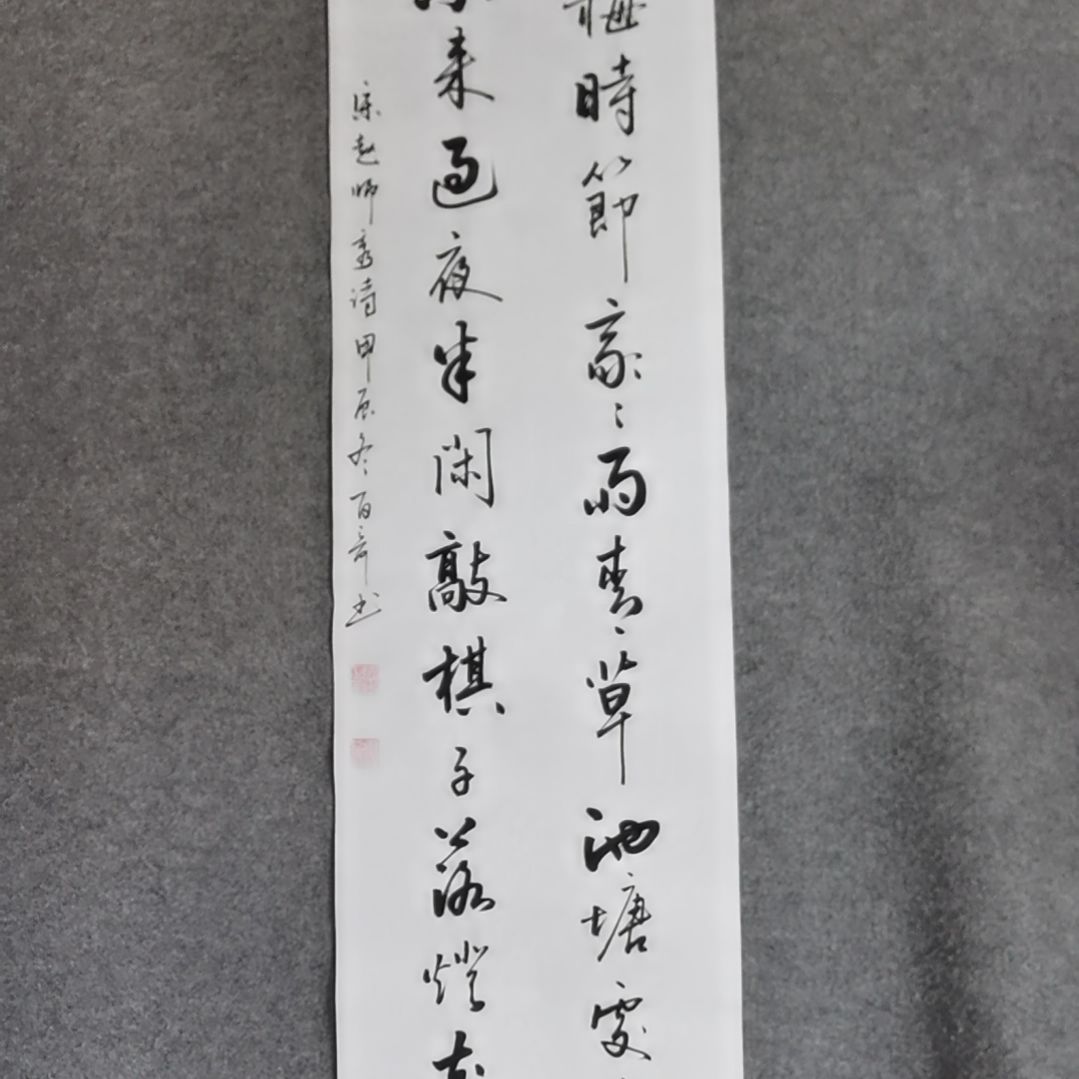 梅時節家々雨青草池塘處
来過夜半閑敲棋子落燈花
宋趙師秀诗甲辰冬百奇书